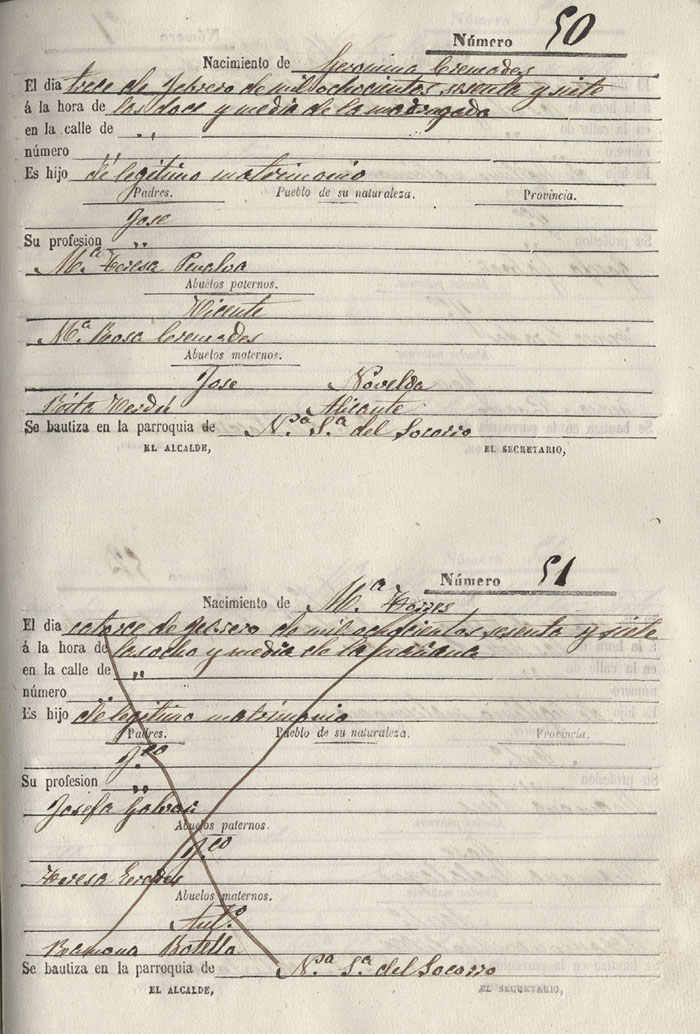 Número 50
Nacimiento de Geronima Cremades
El dia trece de febrero de mil ochocientos sesenta y siete
á la hora de las doce y media de la madrugada
en la calle de "
número "
Es hijo de legitimo matrimonio
Padres. Pueblo de su naturaleza. Provincia.
Jose
Su profesion "
Mª Teresa Penalva
Abuelos paternos.
Vicente
Mª Rosa Cremades
Abuelos maternos.
Jose Novelda
Rita Verdú Alicante
Se bautiza en la parroquia de Nª Sª del Socorro
EL ALCALDE, EL SECRETARIO,
Número 51
Nacimiento de Mª Torres
El dia catorce de febrero de mil ochocientos sesenta y siete
á la hora de las ocho y media de la mañana
en la calle de "
número "
Es hijo de legitimo matrimonio
Padres. Pueblo de su naturaleza. Provincia.
Fco
Su profesion "
Josefa Galvañ
Abuelos paternos.
Fco
Teresa
Abuelos maternos.
Antº
Ramona Botella
Se bautiza en la parroquia de Nrª Sª del Socorro
EL ALCALDE, EL SECRETARIO,